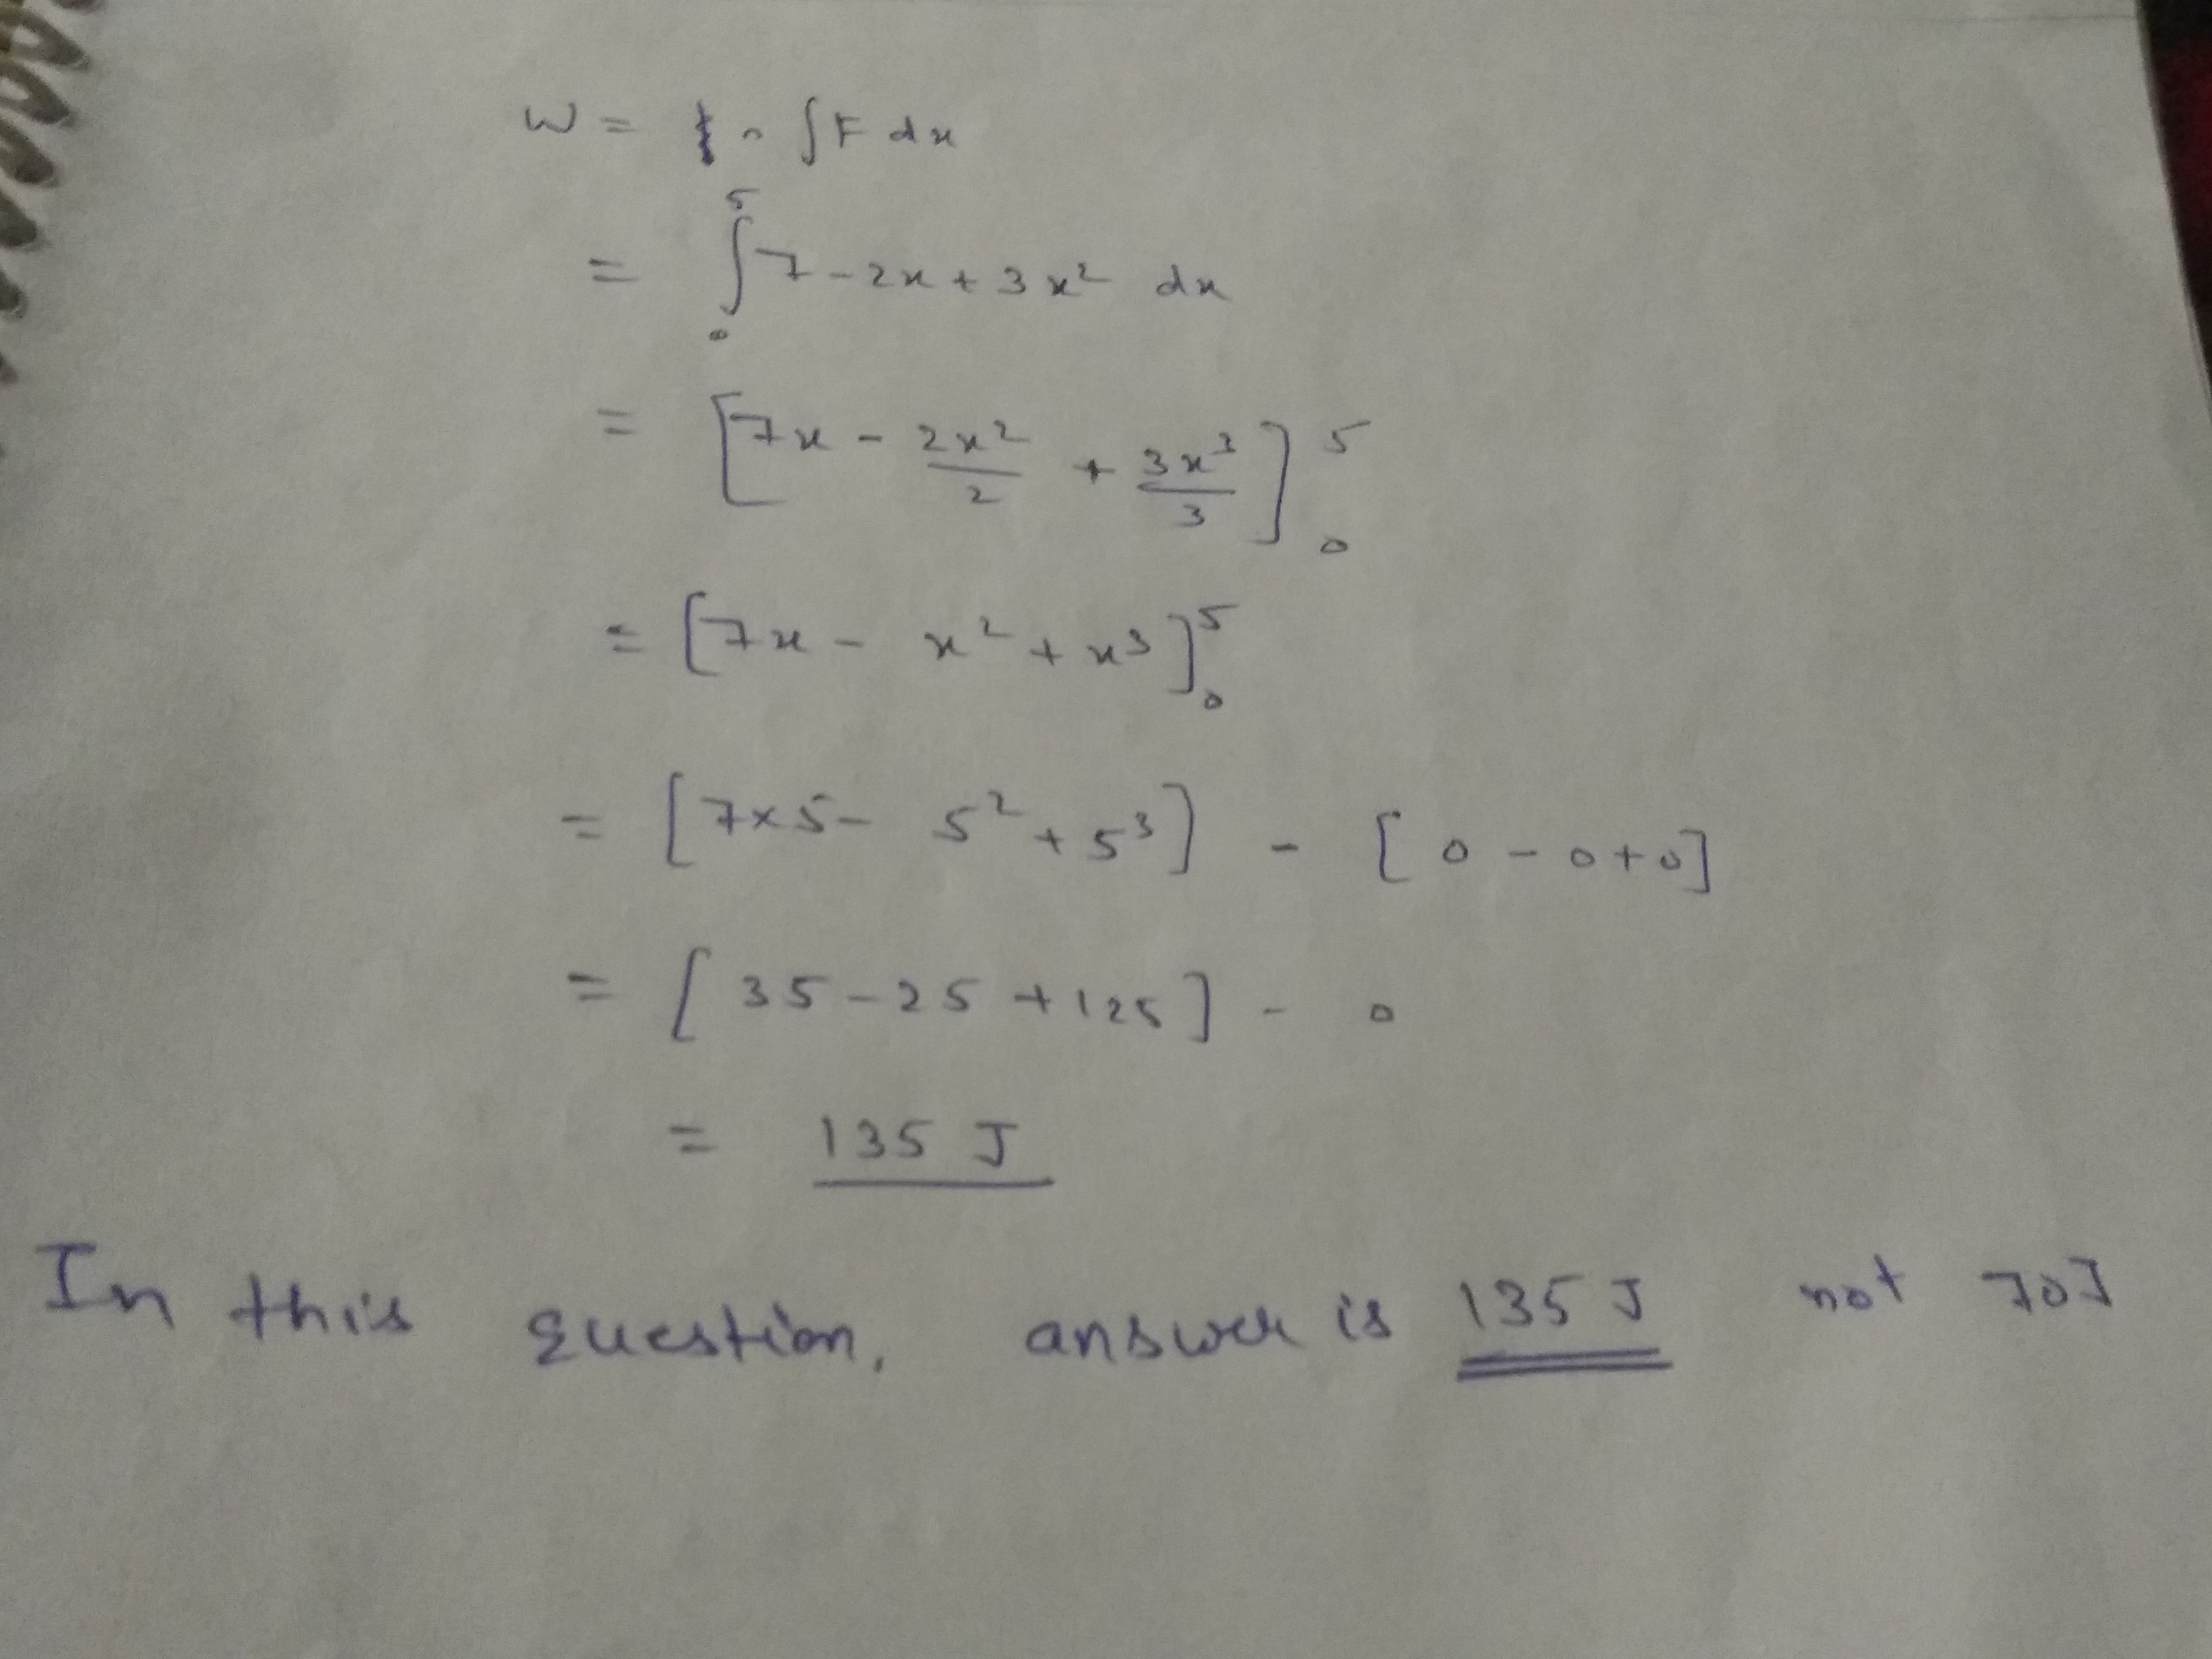 W = ∫F dx
= ∫₀⁵ 7 - 2x + 3x² dx
= [7x - 2x²/2 + 3x³/3]₀⁵
= [7x - x² + x³]₀⁵
= [7×5 - 5² + 5³] - [0 - 0 + 0]
= [35 - 25 + 125] - 0
= 135 J
In this question, answer is 135 J not 70J